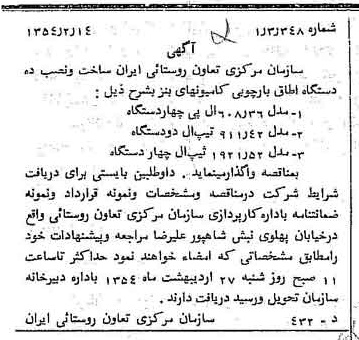 شماره ۱/۳/۳۴۸ ۱۳۵۴/۲/۱۴
آگهی
سازمان مرکزی تعاون روستائی ایران ساخت ونصب ده
دستگاه اطاق بارچوبی کامیونهای بنز بشرح ذیل :
۱- مدل ۶۰۸/۳۶ ال پی چهاردستگاه
۲- مدل ۹۱۱/۴۲ تیپ ال دودستگاه
۳- مدل ۱۹۲۱/۵۲ تیپ ال چهار دستگاه
بمناقصه واگذارمینماید . داوطلبین بایستی برای دریافت
شرایط شرکت درمناقصه ومشخصات ونمونه قرارداد ونمونه
ضمانتنامه باداره کارپردازی سازمان مرکزی تعاون روستائی واقع
درخیابان پهلوی نبش شاهپور علیرضا مراجعه وپیشنهادات خود
رامطابق مشخصاتی که امضاء خواهند نمود حداکثر تاساعت
۱۱ صبح روز شنبه ۲۷ اردیبهشت ماه ۱۳۵۴ باداره دبیرخانه
سازمان تحویل ورسید دریافت دارند .
د - ۴۳۲ سازمان مرکزی تعاون روستائی ایران